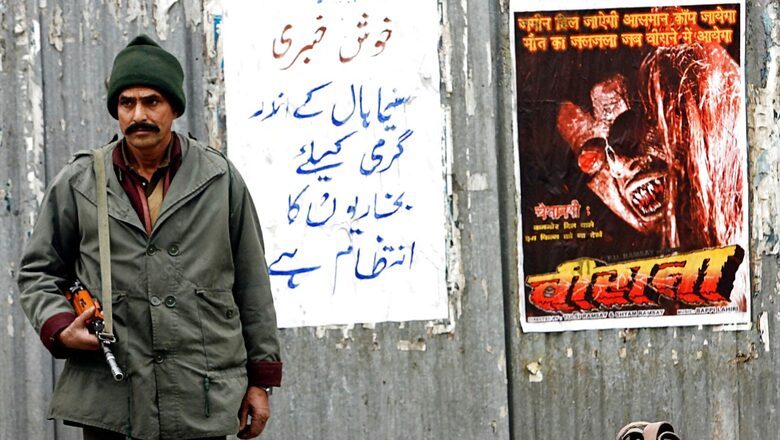 خوش خبری
سنیما ہال کے اندر
گرمی کیلئے
بخاریوں کا
انتظام ہے
ज़मीन हिल जायेगी आसमान कांप जायेगा
मौत का जलजला जब वीराने में आयेगा
चेतावनी!
कमजोर दिल वाले
इस फिल्म को ना देखें
वीराना
RAMSAY & SHYAM RAMSAY
BAPPI LAHIRI